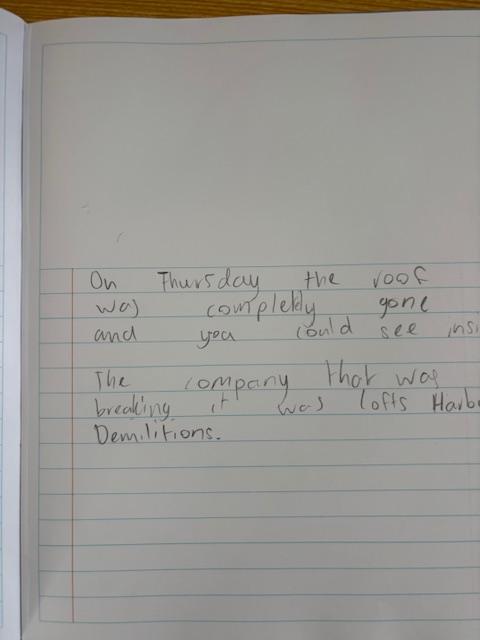 On Thursday the roof
was completly gone
and you could see insi
The company that was
breaking it was lofts Harbo
Demilitions.